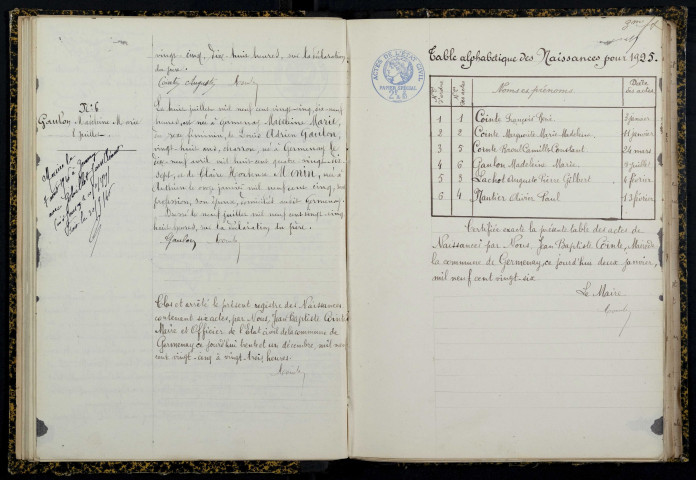 vingt-cinq, dix-huit heures, sur la déclaration
du père.
N° 6
Gaulon Madeleine Marie
8 juillet
Le huit juillet mil neuf cent vingt-cinq,
heures, est né à Germenay Madeleine Marie,
du sexe féminin, de Louis Adrien Gaulon,
vingt-huit ans, charron, né à Germenay le
dix-neuf avril mil huit cent quatre vingt-dix
sept, et de Claire Hortense
le onze janvier mil neuf cent cinq, sans
profession, son épouse, domiciliés audit Germenay.
Dressé le neuf juillet mil neuf cent vingt-cinq
huit heures, sur la déclaration du père.
Gaulon
Clos et arrêté le présent registre des Naissances
contenant six actes, par Nous, Jean Baptiste Cointe
Maire et Officier de l'Etat civil de la commune de
Germenay, ce jourd'hui trente et un décembre, mil neuf
cent vingt-cinq à vingt trois heures.
ACTES DE L'ETAT CIVIL
PAPIER SPECIAL
Table alphabétique des Naissances pour 1925.
Noms et prénoms
Dates des actes
1 1 Cointe François René 3 janvier
2 2 Cointe Marguerite Marie Madeleine 11 janvier
3 5 Cointe Raoul Camille Constant 24 mars
4 6 Gaulon Madeleine Marie 9 juillet
5 3 Lachot Auguste Pierre Gilbert 4 février
6 4 Nantier Olivier Paul 13 février
Certifiée exacte la présente table des actes de
Naissances par Nous, Jean Baptiste Cointe, Maire de
la commune de Germenay, ce jourd'hui deux janvier,
mil neuf cent vingt-six
Le Maire